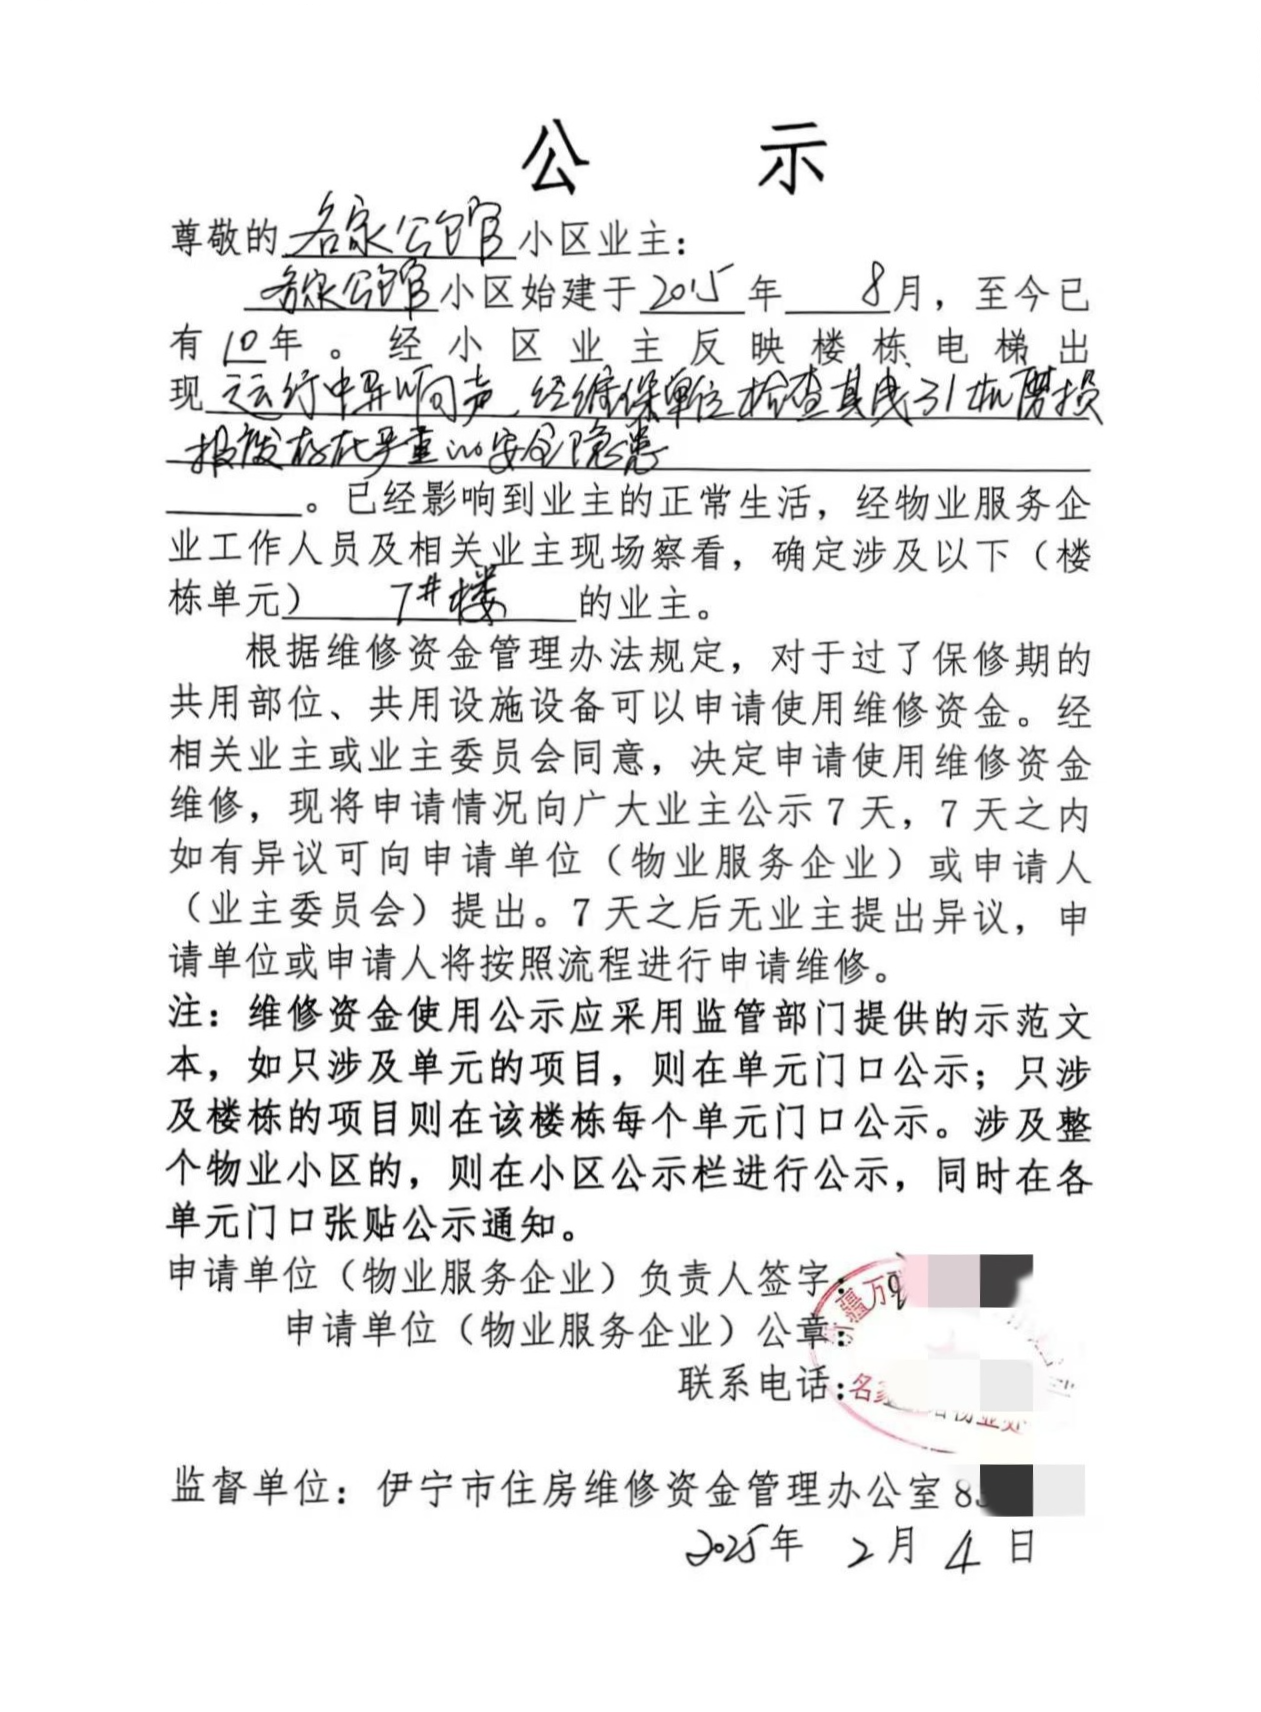 公 示
尊敬的 名家公馆 小区业主：
名家公馆 小区始建于 2015 年 8 月，至今已
有 10 年。经小区业主反映楼栋、电梯出
现 运行中异响声，经维保单位检查其曳引机磨损
报废存在严重的安全隐患
。已经影响到业主的正常生活，经物业服务企
业工作人员及相关业主现场察看，确定涉及以下（楼
栋单元） 7#楼 的业主。
根据维修资金管理办法规定，对于过了保修期的
共用部位、共用设施设备可以申请使用维修资金。经
相关业主或业主委员会同意，决定申请使用维修资金
维修，现将申请情况向广大业主公示 7 天，7 天之内
如有异议可向申请单位（物业服务企业）或申请人
（业主委员会）提出。7 天之后无业主提出异议，申
请单位或申请人将按照流程进行申请维修。
注：维修资金使用公示应采用监管部门提供的示范文
本，如只涉及单元的项目，则在单元门口公示；只涉
及楼栋的项目则在该楼栋每个单元门口公示。涉及整
个物业小区的，则在小区公示栏进行公示，同时在各
单元门口张贴公示通知。
申请单位（物业服务企业）负责人签字：
申请单位（物业服务企业）公章：
疆万
联系电话：
名家
物业处
监督单位：伊宁市住房维修资金管理办公室 8
2025年 2 月 4 日